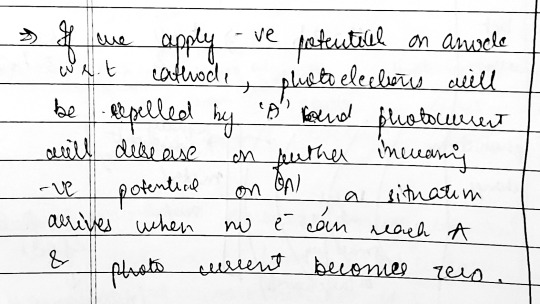 → If we apply -ve potential on anode
w.r.t cathode, photoelectrons will
be repelled by 'A' and photocurrent
will decrease on further increasing
-ve potential on 'A' a situation
arrives when no e⁻ can reach A
& photo current becomes zero.